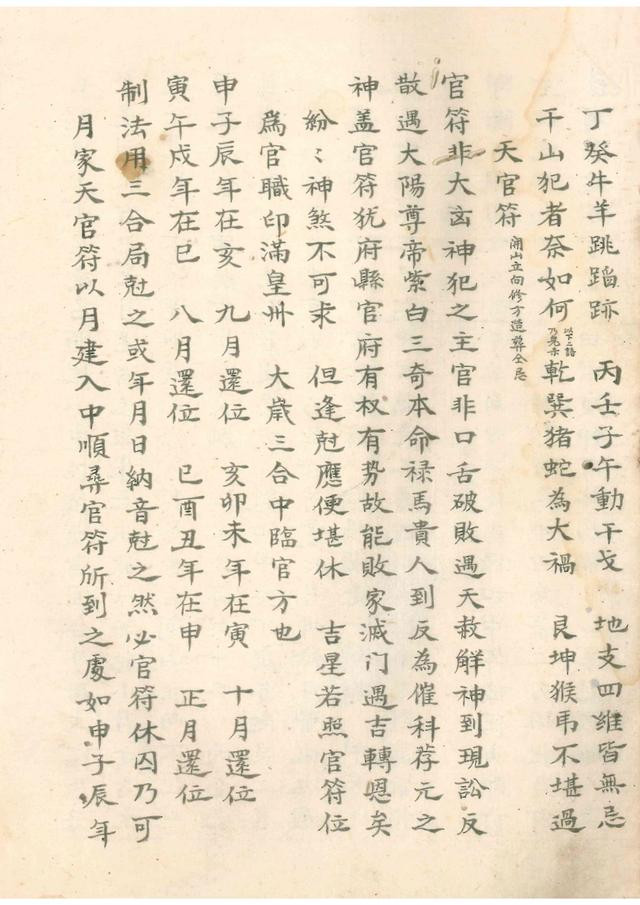 丁癸牛羊跳蹈跡　丙壬子午動干戈　地支四維皆無忌
干山犯者奈如何 以下二語乃是赤 乾巽猪蛇為大禍　艮坤猴乕不堪過
天官符 開山立向修方造葬仝忌
官符非大㐫神犯之主官非口舌破敗遇天赦解神到現訟反
散遇大陽尊帝紫白三奇本命禄馬貴人到反為催科荐元之
神盖官符犹府縣官府有权有势故能敗家滅门遇吉轉恩矣
紛〻神煞不可求　但逢尅應便堪休　吉星若照官符位
爲官職印滿皇州　大歲三合中臨官方也
申子辰年在亥　九月還位　亥卯未年在寅　十月還位
寅午戌年在巳　八月還位　巳酉丑年在申　正月還位
制法用三合局尅之或年月日納音尅之然必官符休囚乃可
月家天官符以月建入中順尋官符所到之處如申子辰年